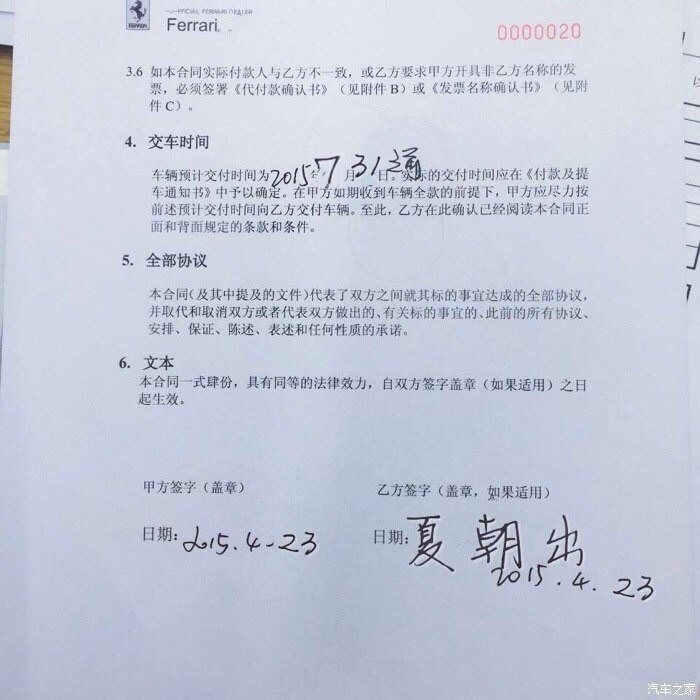 OFFICIAL FERRARI DEALER
Ferrari
0000020
3.6 如本合同实际付款人与乙方不一致，或乙方要求甲方开具非乙方名称的发
票，必须签署《代付款确认书》（见附件 B）或《发票名称确认书》（见附
件 C）。
4. 交车时间
车辆预计交付时间为2015年7月31日，实际的交付时间应在《付款及提
车通知书》中予以确定。在甲方如期收到车辆全款的前提下，甲方应尽力按
前述预计交付时间向乙方交付车辆。至此，乙方在此确认已经阅读本合同正
面和背面规定的条款和条件。
5. 全部协议
本合同（及其中提及的文件）代表了双方之间就其标的事宜达成的全部协议，
并取代和取消双方或者代表双方做出的、有关标的事宜的、此前的所有协议、
安排、保证、陈述、表述和任何性质的承诺。
6. 文本
本合同一式肆份，具有同等的法律效力，自双方签字盖章（如果适用）之日
起生效。
甲方签字（盖章） 乙方签字（盖章，如果适用）
日期：2015.4-23 日期：夏朝出
2015.4.23
汽车之家